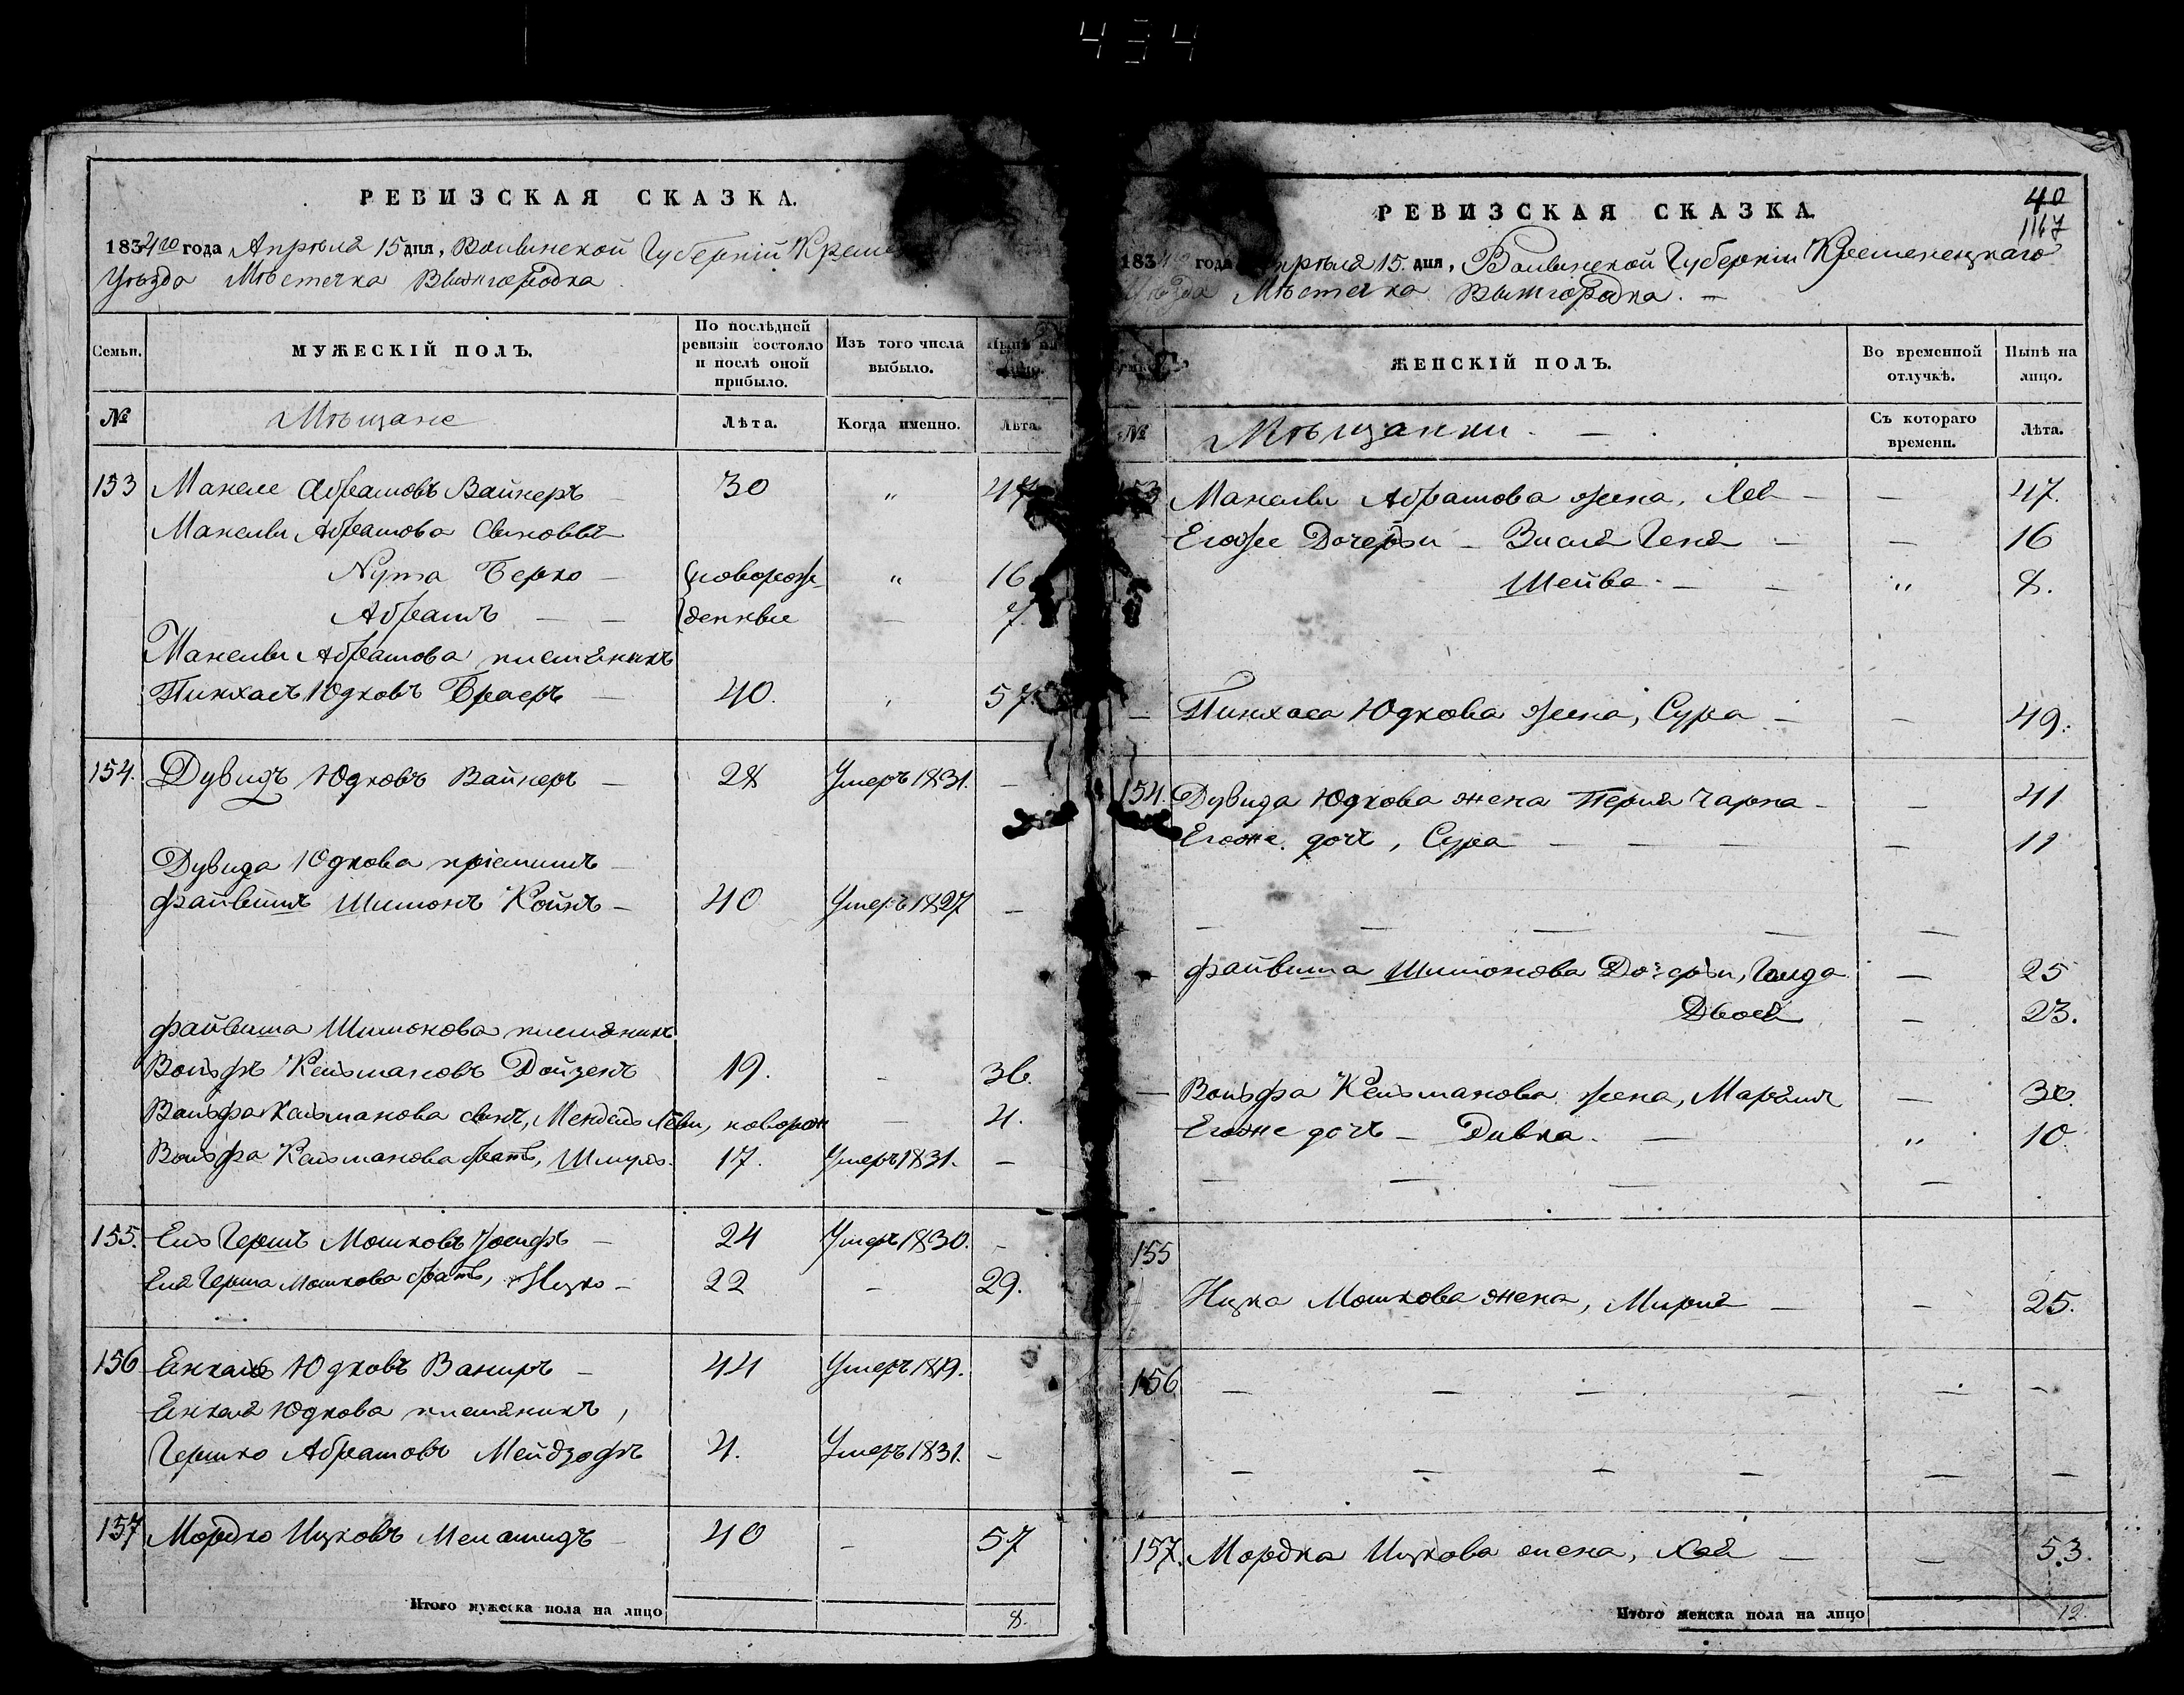 434
РЕВИЗСКАЯ СКАЗКА.
1834го года Апрѣля 15 дня, Волынской Губерніи Креме
Уѣзда Мѣстечка Вышгородка
Семьи. МУЖЕСКІЙ ПОЛЪ. По послѣдней ревизіи состояло и послѣ оной прибыло. Изъ того числа выбыло. Нынѣ на лицо.
№ Мѣщане Лѣта. Когда именно. Лѣта.
153 Манеле Абрамовъ Вайнеръ 30 " 47
Манели Абрамова Сыновья
Нута Берко — новорож " 16
Абрамъ — — денные — 7.
Манели Абрамова племяникъ
Пинхасъ Юдковъ Браеръ — 40. 57.
154. Дувидъ Юдковъ Вайнеръ — 28 Умеръ 1831. —
Дувида Юдкова пріемышъ
Файвишъ Шимонъ Койнъ — 40 Умеръ 1827 —
Файвиша Шимонова племяникъ
Вольфъ Кельмановъ Дойзенъ 19. — 36.
Вольфа Кельманова сынъ, Мендель Леви, новорож — 4.
Вольфа Кельманова братъ, Шмуль. 17. Умеръ 1831. —
155. Ель Гершъ Мошковъ 24 Умеръ 1830. —
Еля Герша Мошкова братъ, Ицко — 22 — 29.
156 Енкель Юдковъ Ваниръ — 44 Умеръ 1819.
Енкеля Юдкова племяникъ,
Гершко Абрамовъ Мейдзофъ 4. Умеръ 1831. —
157 Мордко Ицковъ Меламидъ 40 — 57
Итого мужеска пола на лицо 8.
40
1167
РЕВИЗСКАЯ СКАЗКА
1834 года Апрѣля 15. дня, Волынской Губерніи Кременецкаго
Уѣзда Мѣстечка Вышгородка. —
ЖЕНСКІЙ ПОЛЪ. Во временной отлучкѣ. Нынѣ на лицо.
№ Мѣщанки. — Съ котораго времени. Лѣта.
153 Манели Абрамова жена, Лея — — 47.
Егоже Дочери — Зисля Геня — — 16
Шейва. — — " 8.
— Пинхаса Юдкова жена, Сура — — 49.
154. Дувида Юдкова жена Перля Чарна — — 41
Егоже дочь, Сура — — — — 11
— — — — —
— Файвиша Шимонова Дочери, Голда — 25
Двоея — 23.
— Вольфа Кельманова жена, Марьямъ — 30.
Егоже дочь — Дивка. — " 10.
— — — — —
155
Ицка Мошкова жена, Мирля — — 25.
156. — — — — — —
— — — — — —
157. Мордка Ицкова жена, Хая — — 53.
Итого женска пола на лицо 12.